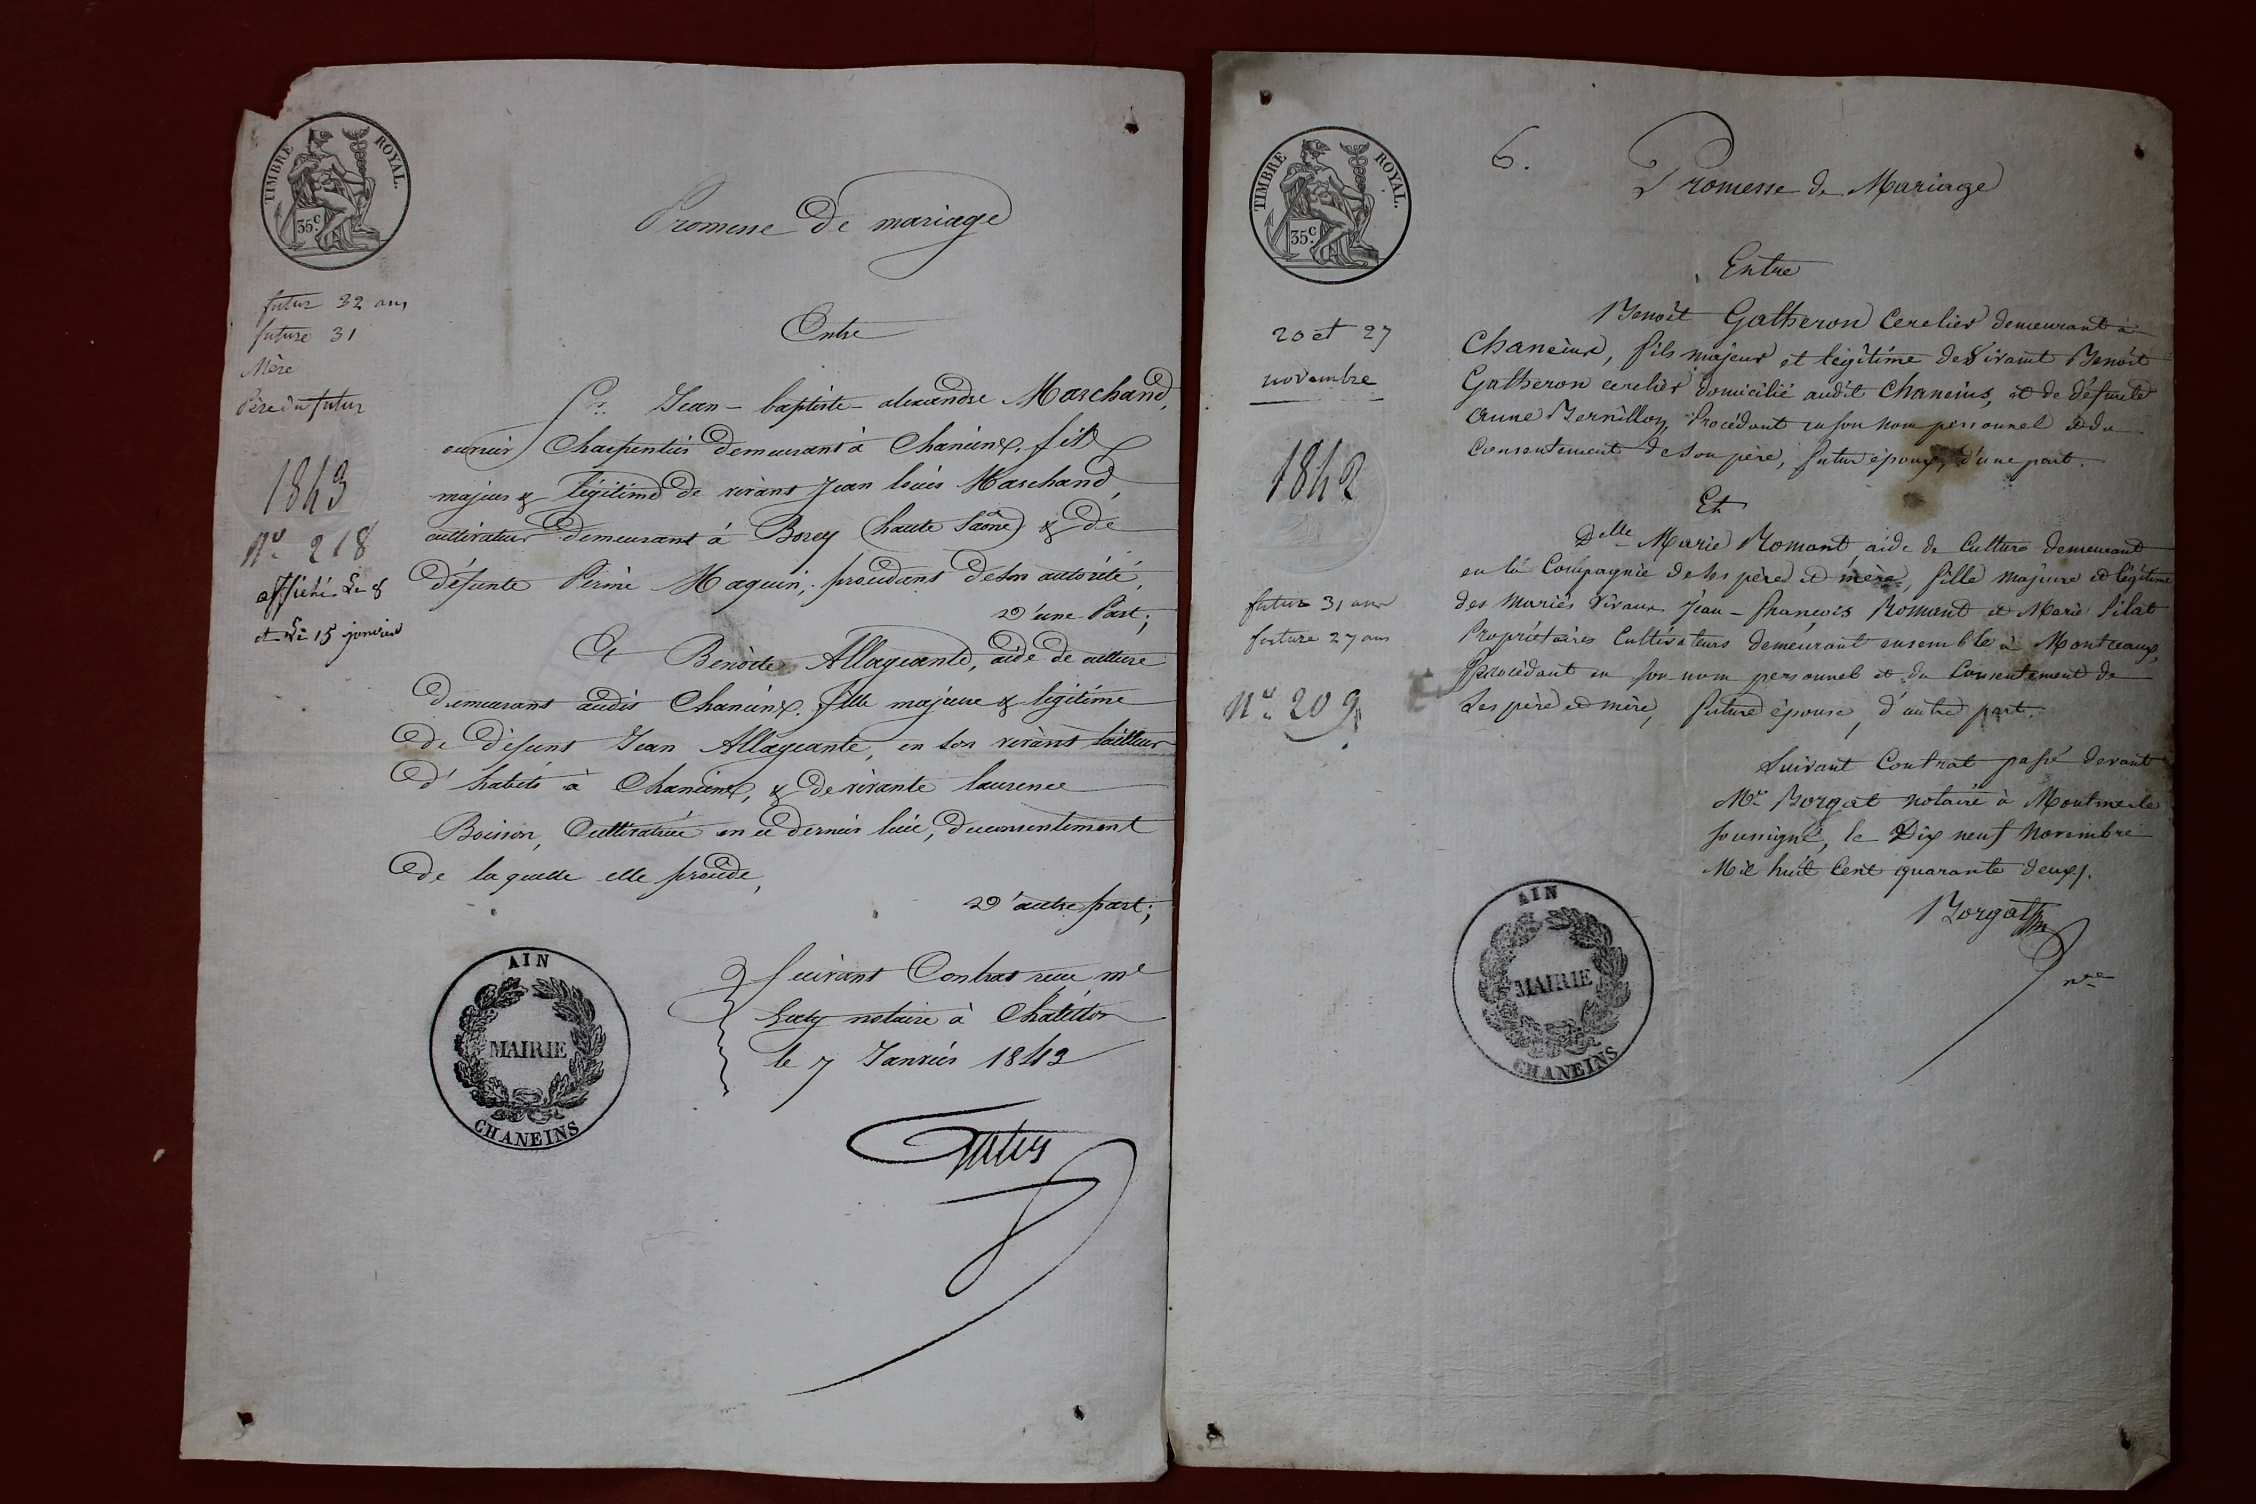 TIMBRE ROYAL.
35c
futur 32 ans
future 31
Mère
Père du futur
1843
No. 218
affiché Le 8
et Le 15 janvier
Promesse De mariage
Entre
Sr. Jean-baptiste-alexandre Marchand,
ouvrier Charpentier demeurant à Chanèinx, fils
majeur & légitime de vivant Jean louis Marchand,
cultivateur demeurant à Borey (haute Saône) & de
défunte Pierrie Maquin, procédant de son autorité,
D'une Part;
Et Benoite Allayeante, aide de culture
demeurant audit Chanèinx, fille majeure & légitime
de défunt Jean Allayeante, en son vivant tailleur
d'habits à Chanèinx, & de vivante laurence
Boisson, Cultivatrice en ce dernier lieu, du consentement
de laquelle elle procède,
D'autre part;
Suivant Contrat reçu me
notaire à Châtillon
le 7 Janvier 1843
AIN
MAIRIE
CHANEINS
TIMBRE ROYAL.
35c
20 et 27
novembre
1842
futur 31 ans
future 27 ans
No. 209
6.
Promesse de Mariage
Entre
Benoît Gatheron cerclier demeurant à
Chaneins, fils majeur et légitime de Vivant Benoît
Gatheron cerclier domicilié audit Chaneins, et de défunte
anne Bernillon, Procédant en son nom personnel et du
Consentement de son père, futur époux, d'une part.
Et
Delle Marie Romant aide de Culture demeurant
en la Compagnie de ses père et mère, fille majeure et légitime
des mariés Vivaux Jean-françois Romant et Marie Pilat
Propriétaires Cultivateurs demeurant ensemble à Montceaux,
Procédant en son nom personnel et du Consentement de
ses père et mère, future épouse, d'autre part.
Suivant Contrat passé devant
Me. Borgat notaire à Montmerle
soussigné, le Dix neuf Novembre
Mil huit Cent quarante deux.
Borgat
nre
AIN
MAIRIE
CHANEINS